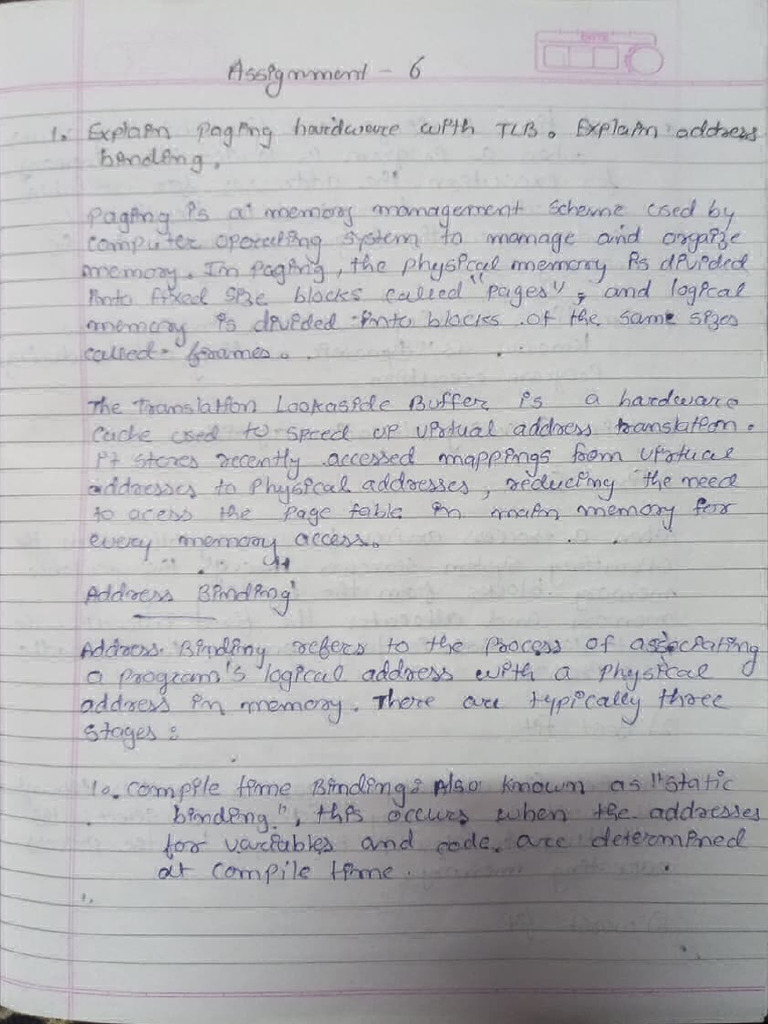 DATE
Assignment - 6
1. Explain paging hardware with TLB. Explain address
binding.
Paging is a memory management scheme used by
computer operating system to manage and orgaize
memory. In Paging, the physical memory is divided
into fixed size blocks called "pages", and logical
memory is divided into blocks of the same sizes
called frames.
The Translation Lookaside Buffer is a hardware
cache used to speed up virtual address translation.
it stores recently accessed mappings from virtual
addresses to physical addresses, reducing the need
to acess the page table in main memory for
every memory access.
Address Binding
Address Binding refers to the process of associating
a program's logical address with a physical
address in memory. There are typically three
stages:
1. Compile time Binding: Also known as "static
binding", this occurs when the addresses
for variables and code are determined
at compile time.